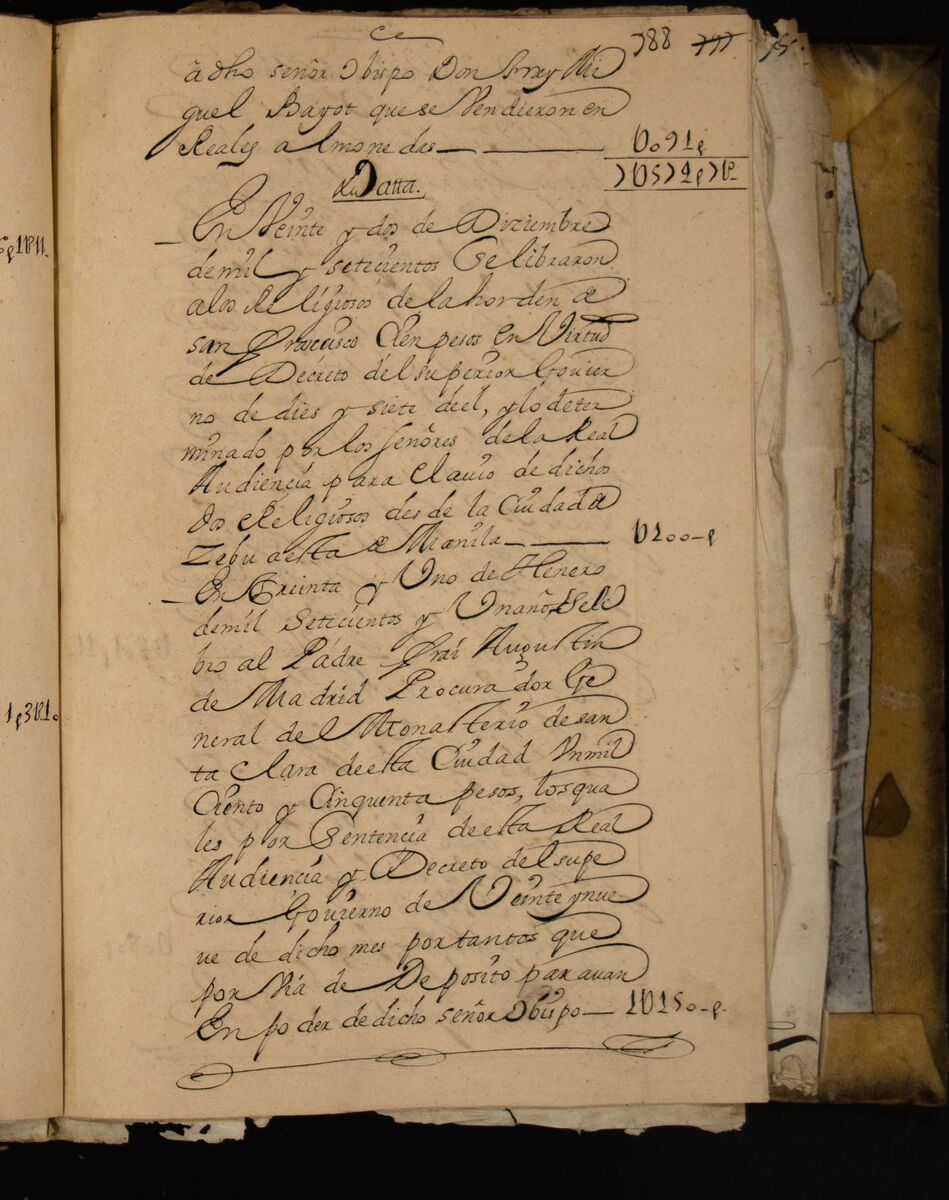 ce
788
a dho señor Obispo Don fray Mi
guel Bayot que se Vendieron en
Reales almonedas
U091p
Datta.
En Veinte y dos de Diziembre
demil y setecientos Se libraron
alos Religiosos de la horden de
san francisco Cien pesos en Virtud
de Decreto del superior Govier
no de dies y siete deel, y lo deter
minado por los señores de la Real
Audiencia para el auio de dichos
dos Religiosos desde la Ciudad de
Zebu aesta de Manila
U100-p
En treinta y Uno de Henero
demil Setecientos y Un año, Seli
bro al Padre frai Augustin
de Madrid Procurador Ge
neral del Monasterio de san
ta Clara deesta Ciudad Vnmil
Ciento y Cinquenta pesos, los qua
les por Sentencia deesta Real
Audiencia y Decreto del supe
rior Govierno de Veinte y nue
ue de dicho mes por tantos que
por Via de Deposito parauan
En poder de dicho señor Obispo
1U150-p